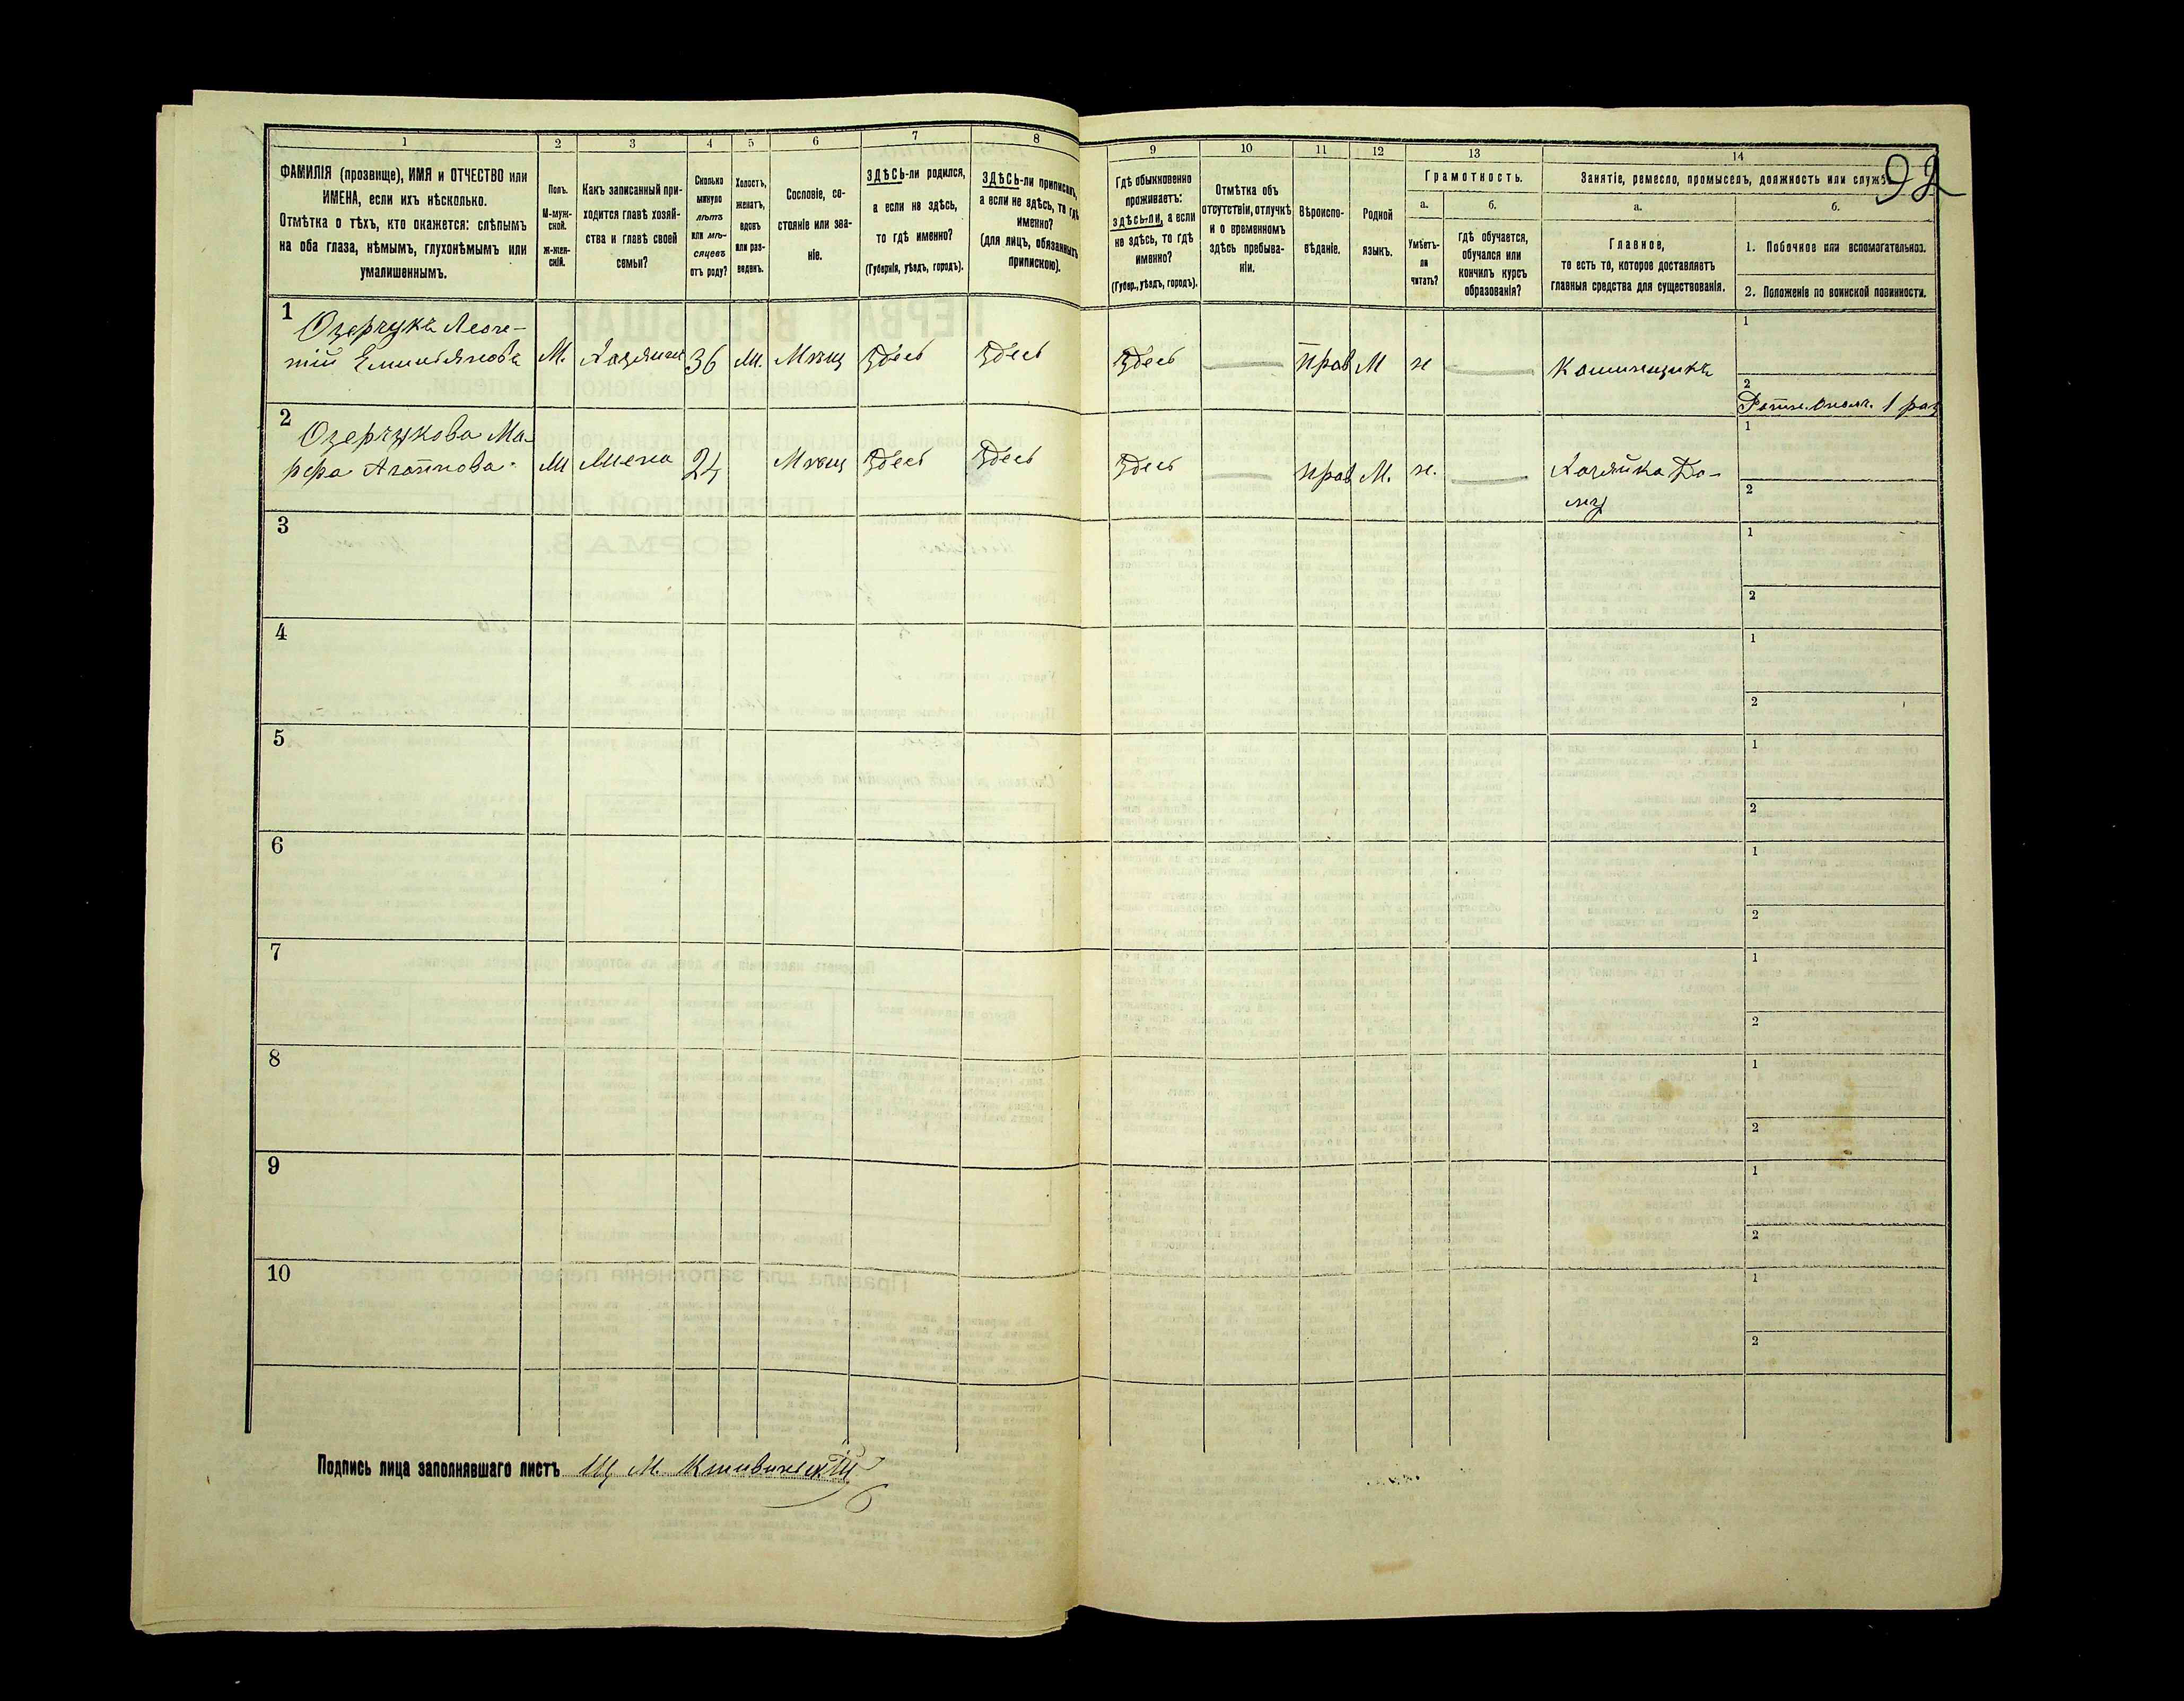 1 2 3 4 5 6 7 8
ФАМИЛІЯ (прозвище), ИМЯ и ОТЧЕСТВО или
ИМЕНА, если ихъ нѣсколько.
Отмѣтка о тѣхъ, кто окажется: слѣпымъ
на оба глаза, нѣмымъ, глухонѣмымъ или
умалишеннымъ.
Полъ.
М-муж-
ской.
ж-жен-
скій.
Какъ записанный при-
ходится главѣ хозяй-
ства и главѣ своей
семьи?
Сколько
минуло
лѣтъ
или мѣ-
сяцевъ
отъ роду?
Холостъ,
женатъ,
вдовъ
или раз-
веденъ.
Сословіе, со-
стояніе или зва-
ніе.
ЗДѢСЬ-ли родился,
а если не здѣсь,
то гдѣ именно?
(Губернія, уѣздъ, городъ).
ЗДѢСЬ-ли приписанъ,
а если не здѣсь, то гдѣ
именно?
(для лицъ, обязанныхъ
припискою).
9 10 11 12 13 14
92
Гдѣ обыкновенно
проживаетъ:
здѣсь-ли, а если
не здѣсь, то гдѣ
именно?
(Губер., уѣздъ, городъ).
Отмѣтка объ
отсутствіи, отлучкѣ
и о временномъ
здѣсь пребыва-
ніи.
Вѣроиспо-
вѣданіе.
Родной
языкъ.
Грамотность.
а. б.
Умѣетъ-
ли
читать?
гдѣ обучается,
обучался или
кончилъ курсъ
образованія?
Занятіе, ремесло, промыселъ, должность или служб
а. б.
Главное,
то есть то, которое доставляетъ
главныя средства для существованія.
1. Побочное или вспомогательное.
2. Положеніе по воинской повинности.
1
Озерчукъ Леон-
тій Емильяновъ М. Хозяинъ 36 М. Мѣщ Здесь Здесь Здесь — прав М н — Каминщикъ
1
2
Ратн. Ополч. 1 раз
2
Озерчукова Ма-
М Жена 24 Мѣщ Здесь Здесь Здесь — прав М. н. — Хозяйка До-
му
1
2
3
1
2
4
1
2
5
1
2
6
1
2
7
1
2
8
1
2
9
1
2
10
1
2
Подпись лица заполнявшаго листъ